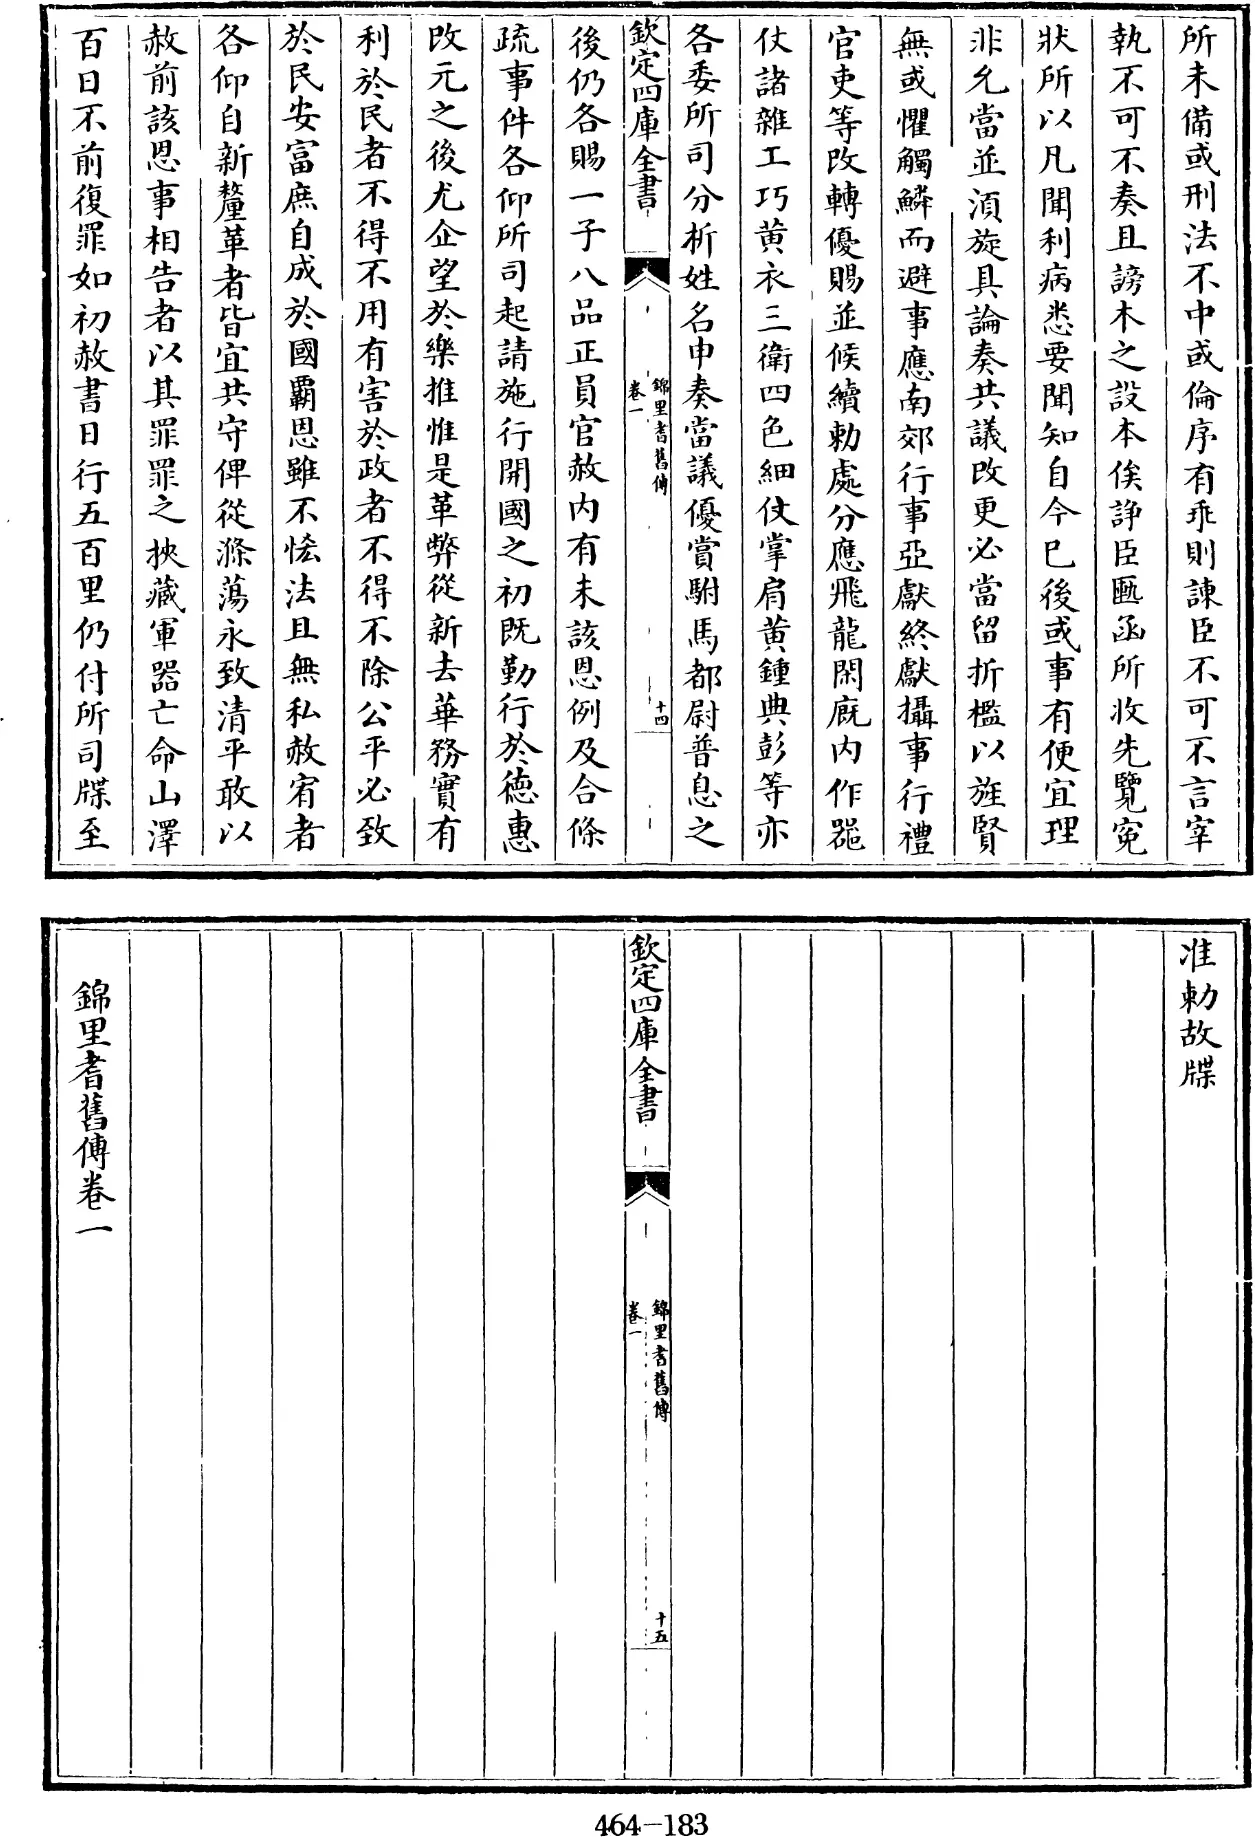 所未備或刑法不中或倫序有乖則諫臣不可不言宰
執不可不奏且謗木之設本俟諍臣匭函所收先覽寃
狀所以凡聞利病悉要聞知自今已後或事有便宜理
非允當並須旋具論奏共議改更必當留折檻以旌賢
無或懼觸鱗而避事應南郊行事亞獻終獻攝事行禮
官吏等改轉優賜並候續勅處分應飛龍閑廐内作噐
仗諸雜工巧黄衣三衛四色細仗掌肩黄鍾典彭等亦
各委所司分析姓名申奏當議優賞駙馬都尉普息之
欽定四庫全書
錦里耆舊傳
卷一
十四
後仍各賜一子八品正員官赦内有未該恩例及合條
疏事件各仰所司起請施行開國之初既勤行於德惠
改元之後尤企望於樂推惟是革弊從新去華務實有
利於民者不得不用有害於政者不得不除公平必致
於民安富庶自成於國霸恩雖不恡法且無私赦宥者
各仰自新釐革者皆宜共守俾從滌蕩永致清平敢以
赦前該恩事相告者以其罪罪之挾藏軍器亡命山澤
百日不首復罪如初赦書日行五百里仍付所司牒至
准勅故牒
欽定四庫全書
錦里耆舊傳
卷一
十五
錦里耆舊傳卷一
464-183